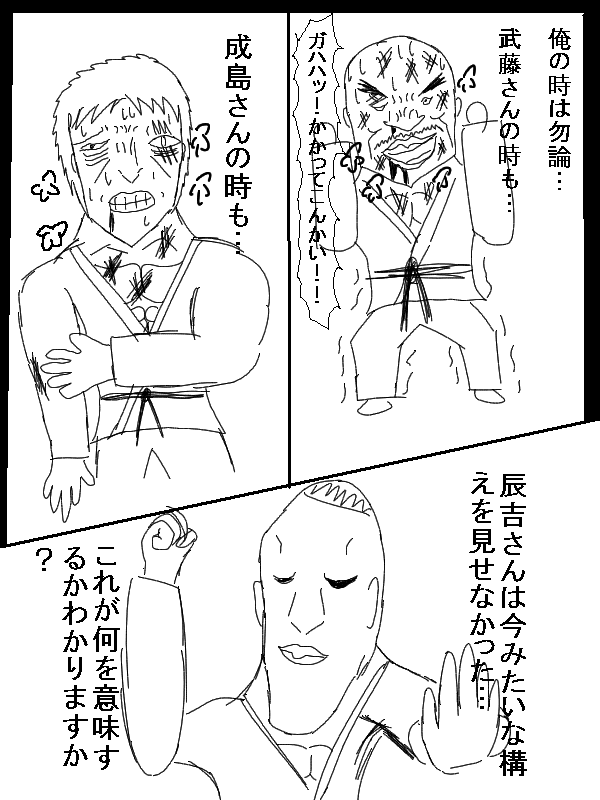 俺の時は勿論…
武藤さんの時も…
ガハハッ！かかってこんかい！！
成島さんの時も…
辰吉さんは今みたいな構
えを見せなかった…
これが何を意味す
るかわかりますか
？